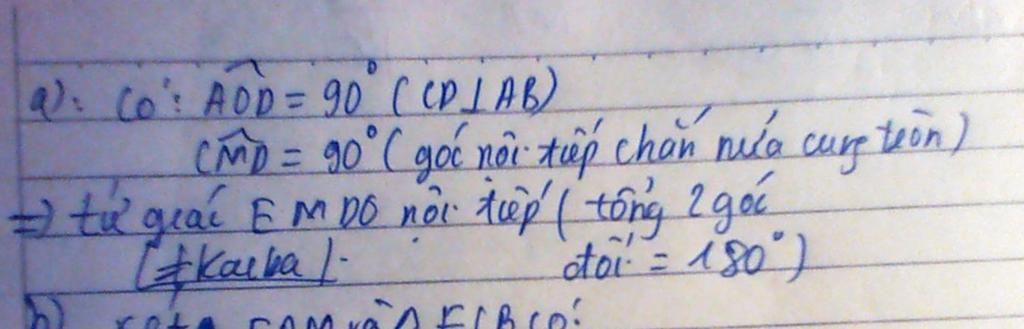 a): Có: AOD = 90° (CD⊥AB)
CMD = 90° (góc nội tiếp chắn nửa cung tròn)
=> tứ giác EMDO nội tiếp (tổng 2 góc
[≠Kaiba]. đối = 180°)
b)